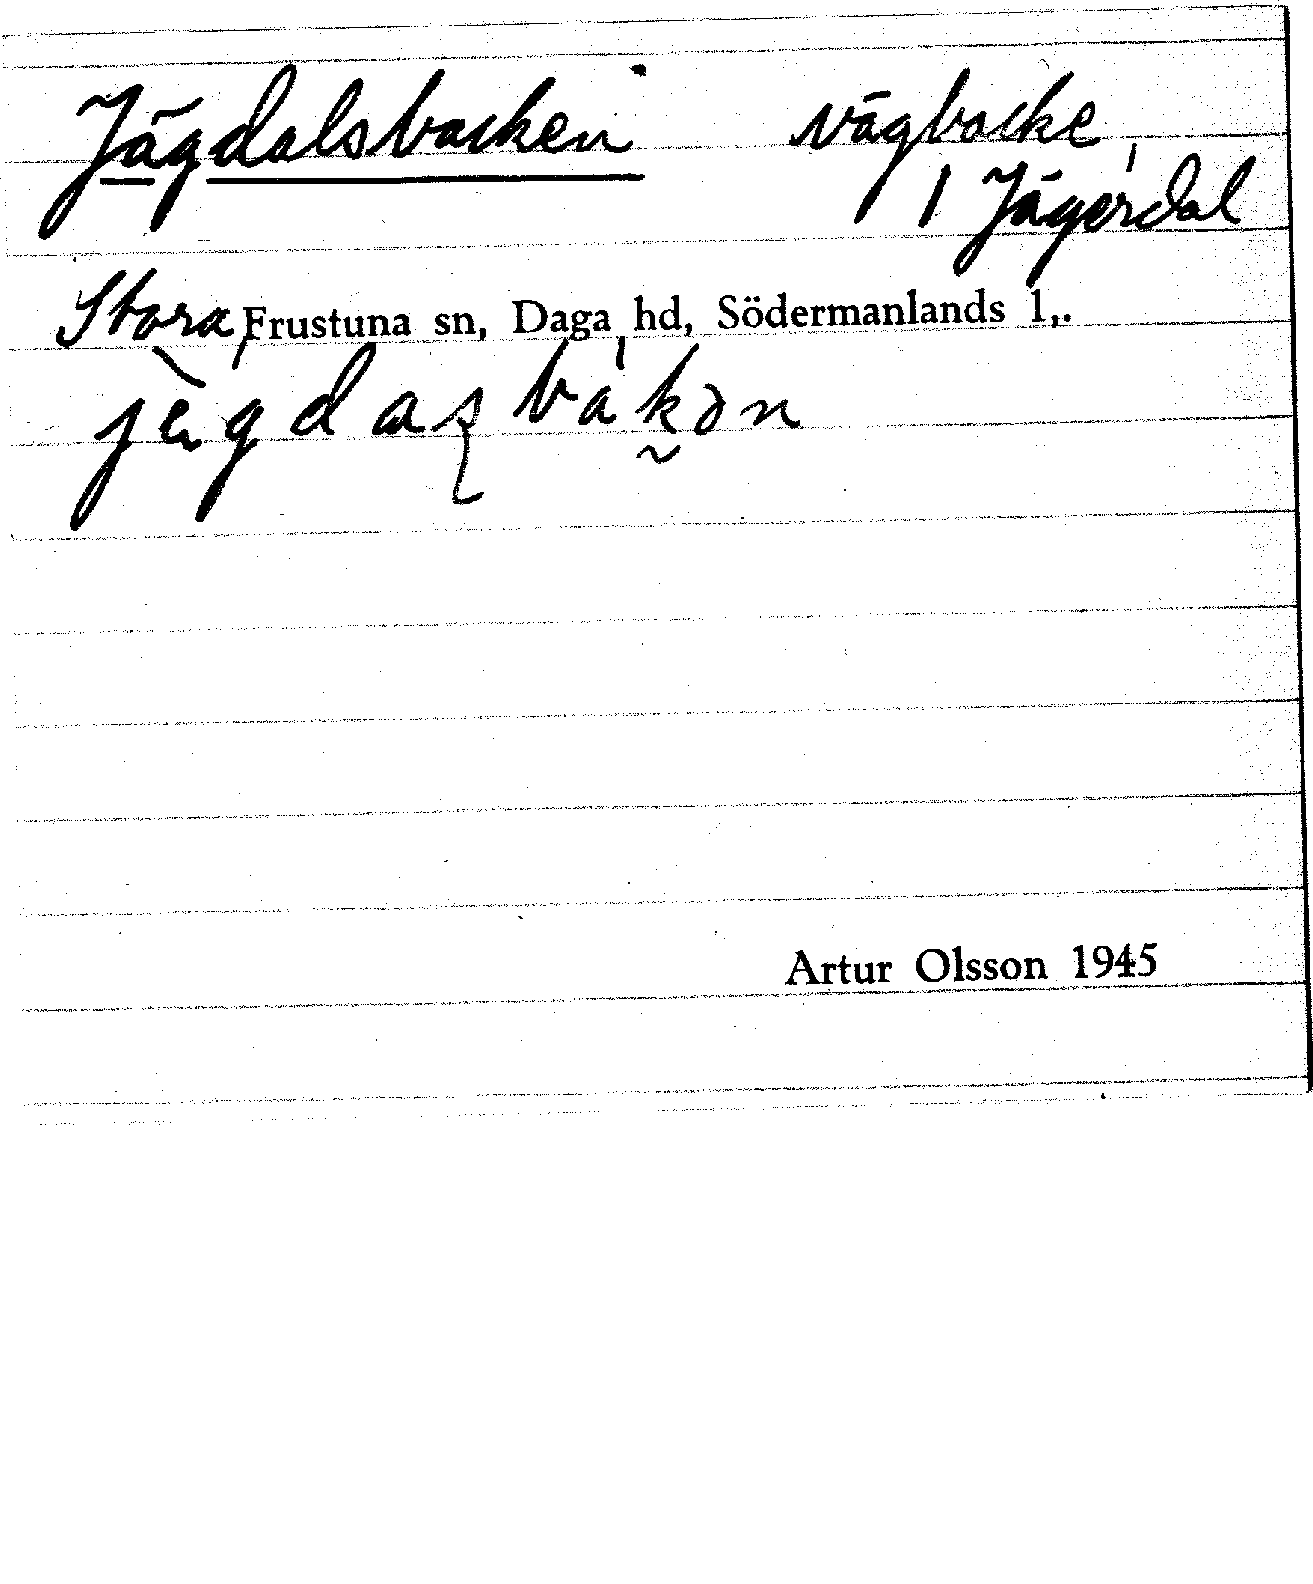 Jägdalsbacken vägbacke,
1 Jägerdal
Stora, Frustuna sn, Daga hd, Södermanlands l,.
Artur Olsson 1945